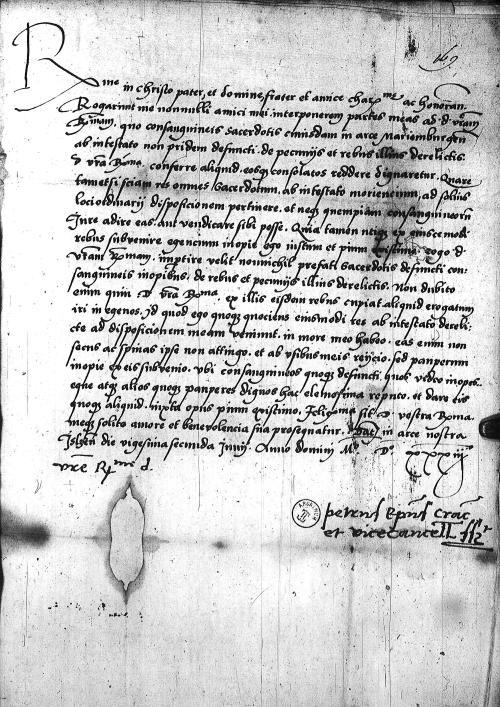 169
Rme in christo pater, et domine frater et amice charme ac honoran.
Rogarunt me nonnulli amici mei interponerem partes meas ad d. vram
Rmam, quo consanguineis sacerdotis cuiusdam in arce Marienburgen
ab intestato non pridem defuncti de pecunijs et rebus illius derelictis
d vra Rma. conferre aliquid eosq consolatos reddere dignaretur. Quare
tametsi sciam res omnes sacerdotum, ab intestato morientium, ad solius
loci ordinarij dispositionem pertinere, et neq quempiam consanguineorum
Iure adire eas, aut vendicare sibi posse. Quia tamen
rebus subvenire egencium inopie ego iustum et pium existimo, rogo d.
vram Rmam. impetire velit nonnichil prefati sacerdotis defuncti con:
sanguineis inopibus, de rebus et pecunijs illius derelictis. Non dubito
enim quin D. vra Rma. ex illis eisdem rebus cupiat aliquid erogatum
iri in egenos. Id quod ego quoq quociens eiusmodi res ab intestato dereli:
cte ad dispositionem meam veniunt, in more meo habeo. eas enim non
secus ac spinas ipse non attingo, et ab vsibus meis reijcio. sed pauperum
inopie ex eis subvenio. vbi consanguineos quoq defuncti, quos video inopes,
eque atq alios quosq pauperes dignos hac elemosina reputo, et dare eis
quoq aliquid iuxta opus pium existimo. D vestra Rma.
meq solito amore et benevolencia sua prosequatur. Dat in arce nostra
Ilzen die vigesima secunda Junij. Anno domini Mo. Do. xxxiiijo
vre Rme d.
petrus Epus Crac
et vicecancell ssz